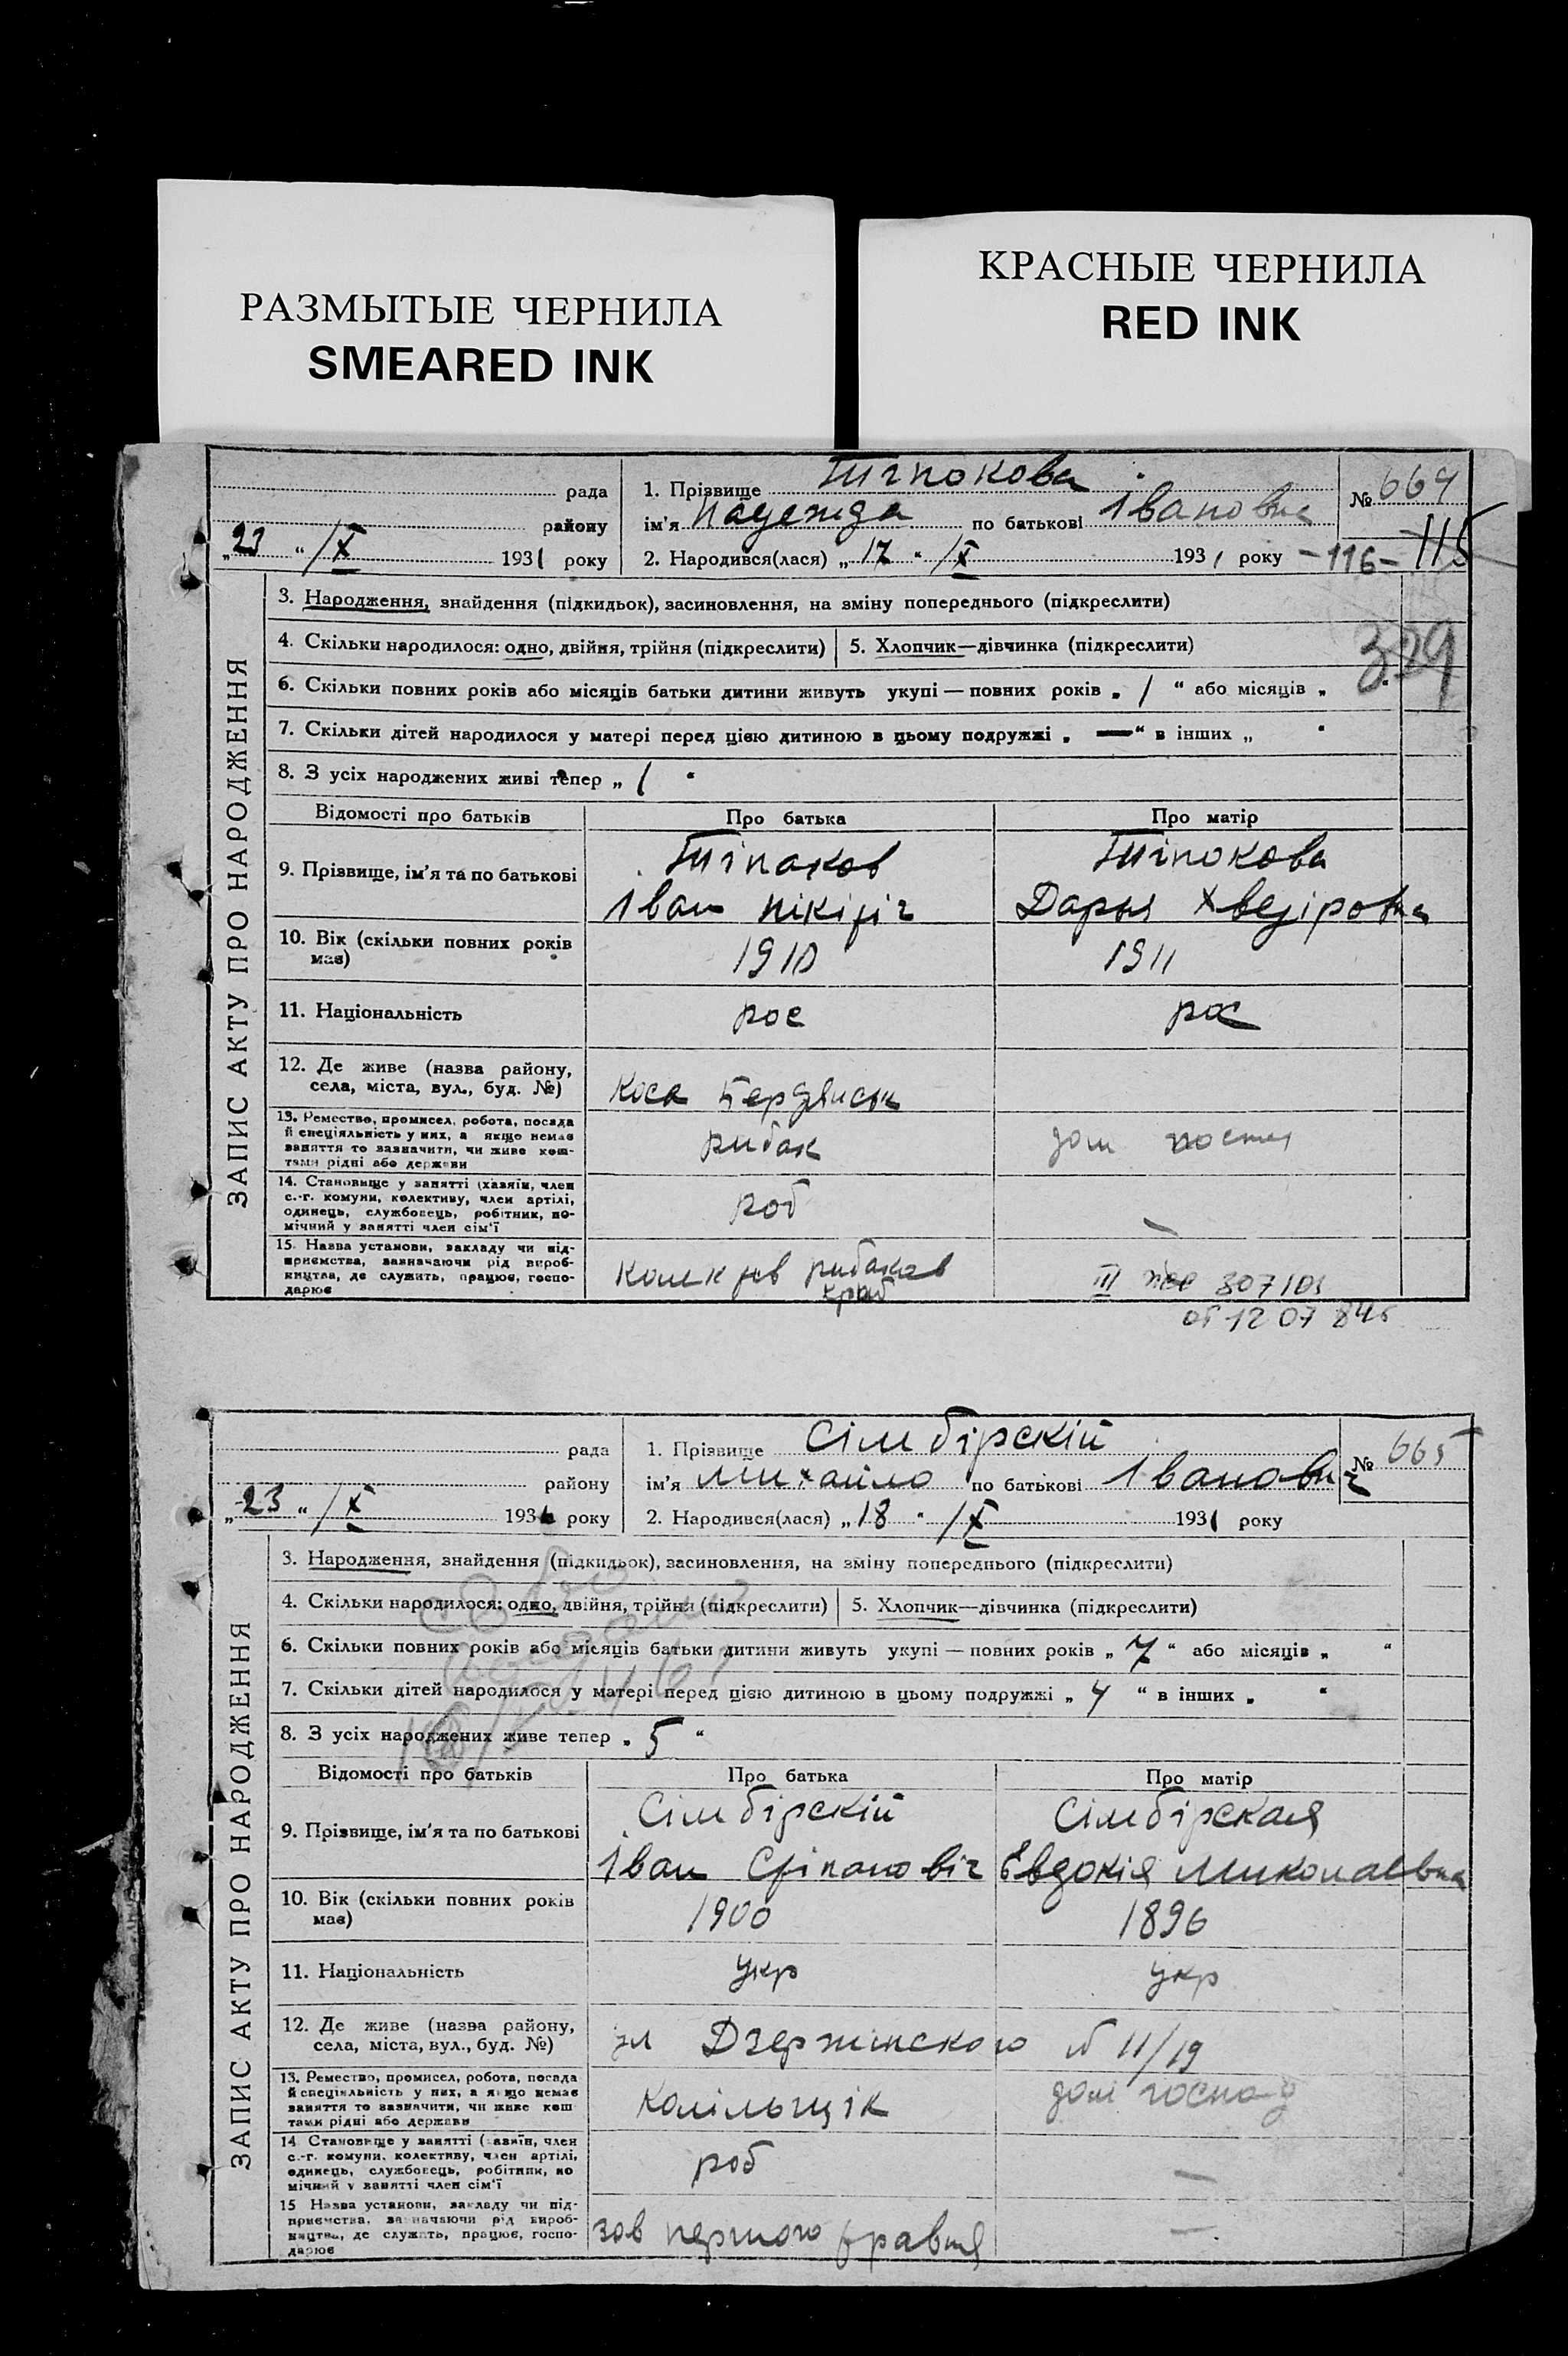 РАЗМЫТЫЕ ЧЕРНИЛА
SMEARED INK
КРАСНЫЕ ЧЕРНИЛА
RED INK
рада
району
„23 “ /IX 1931 року
1. Прізвище
ім'я Надежда по батькові Івановна
2. Народився(лася) „ 17 “ /IX 1931 року
№ 664
–116– 115
329
ЗАПИС АКТУ ПРО НАРОДЖЕННЯ
3. Народження, знайдення (підкидьок), засиновлення, на зміну попереднього (підкреслити)
4. Скільки народилося: одно, двійня, трійня (підкреслити)
5. Хлопчик—дівчинка (підкреслити)
6. Скільки повних років або місяців батьки дитини живуть укупі — повних років „ 1 “ або місяців „ “
7. Скільки дітей народилося у матері перед цією дитиною в цьому подружжі „ — “ в інших „ “
8. З усіх народжених живі тепер „ 1 “
Відомості про батьків
Про батька
Про матір
9. Прізвище, ім'я та по батькові
Іван
Дарья Хведіровна
10. Вік (скільки повних років має)
1910
1911
11. Національність
рос
рос
12. Де живе (назва району, села, міста, вул., буд. №)
Коса Бердянськ
13. Ремество, промисел, робота, посада й спеціяльність у них, а якщо немає заняття то зазначити, чи живе коштами рідні або держави
рибак
дом
14. Становище у занятті (хазяїн, член с.-г. комуни, колективу, член артілі, одинець, службовець, робітник, помічний у занятті член сім'ї
роб
—
15. Назва установи, закладу чи підприємства, зазначаючи рід виробництва, де служить, працює, господарює
рибаков
III 307101
от 12 07 84г
рада
району
„23 “ /IX 1931 року
1. Прізвище Сімбірскій
ім'я Михайло по батькові Іванович
2. Народився(лася) „ 18 “ /IX 1931 року
№ 665
ЗАПИС АКТУ ПРО НАРОДЖЕННЯ
3. Народження, знайдення (підкидьок), засиновлення, на зміну попереднього (підкреслити)
4. Скільки народилося: одно, двійня, трійня (підкреслити)
5. Хлопчик—дівчинка (підкреслити)
6. Скільки повних років або місяців батьки дитини живуть укупі — повних років „ 7 “ або місяців „ “
7. Скільки дітей народилося у матері перед цією дитиною в цьому подружжі „ 4 “ в інших „ “
8. З усіх народжених живе тепер „ 5 “
Відомості про батьків
Про батька
Про матір
9. Прізвище, ім'я та по батькові
Сімбірскій
Іван
Сімбірская
Євдокія Миколаевна
10. Вік (скільки повних років має)
1900
1896
11. Національність
укр
укр
12. Де живе (назва району, села, міста, вул., буд. №)
ул Дзержінского № 11/19
13. Ремество, промисел, робота, посада й спеціяльність у них, а якщо немає заняття то зазначити, чи живе коштами рідні або держави
дом господ
14 Становище у занятті (хазяїн, член с.-г. комуни, колективу, член артілі, одинець, службовець, робітник, помічний у занятті член сім'ї
роб
—
15 Назва установи, закладу чи підприємства, зазначаючи рід виробництва, де служить, працює, господарює
зав першого травня
—